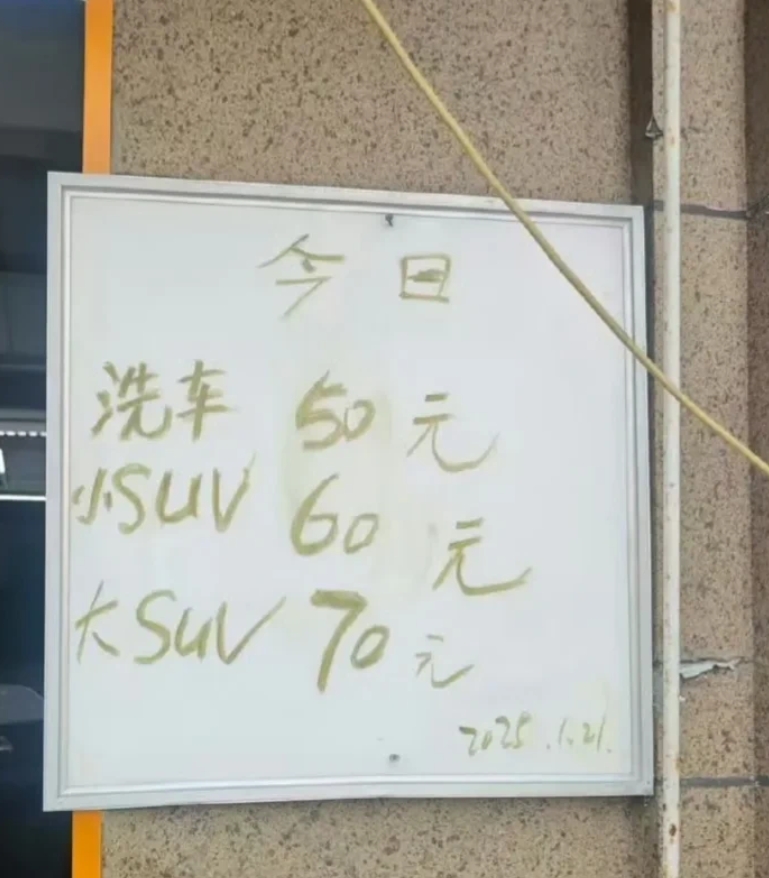 今日
洗车 50元
小SUV 60元
大SUV 70元
2025.1.21.